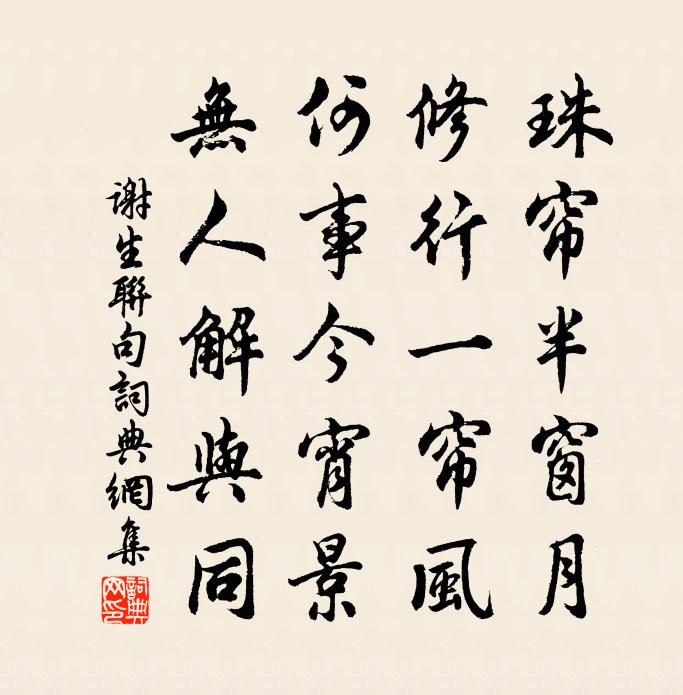 珠帘半窗月
修行一帘風
何事今宵景
無人解與同
謝生聯句詞典網集
詞典網印